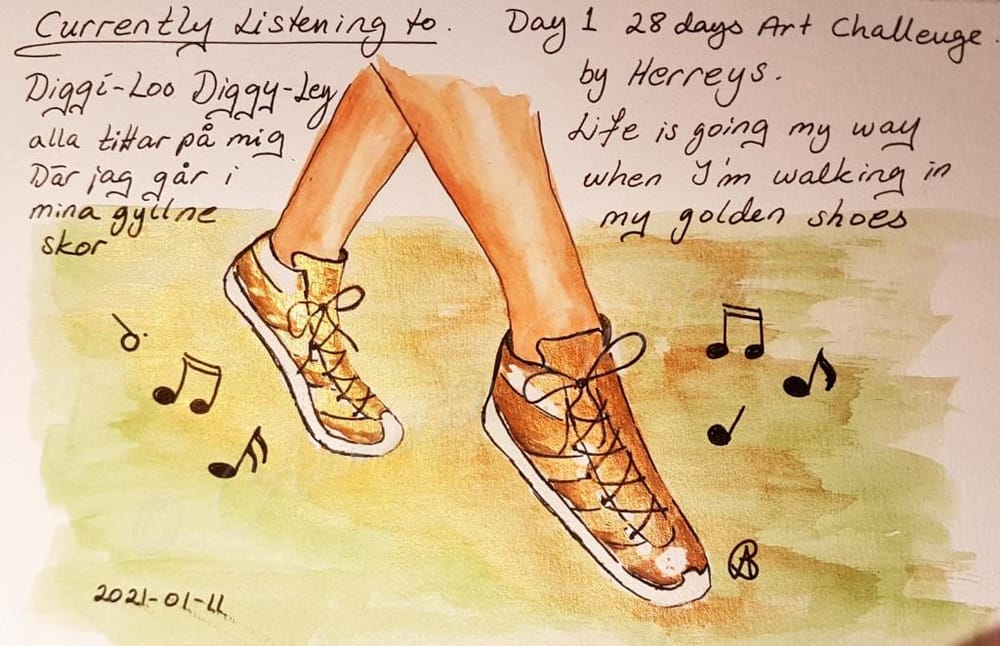 Currently Listening to.
Day 1 28 days Art Challenge.
Diggi-Loo Diggy-Ley
alla tittar på mig
Där jag går i
mina gyllne
skor
by Herreys.
Life is going my way
when I'm walking in
my golden shoes
AB
2021-01-11